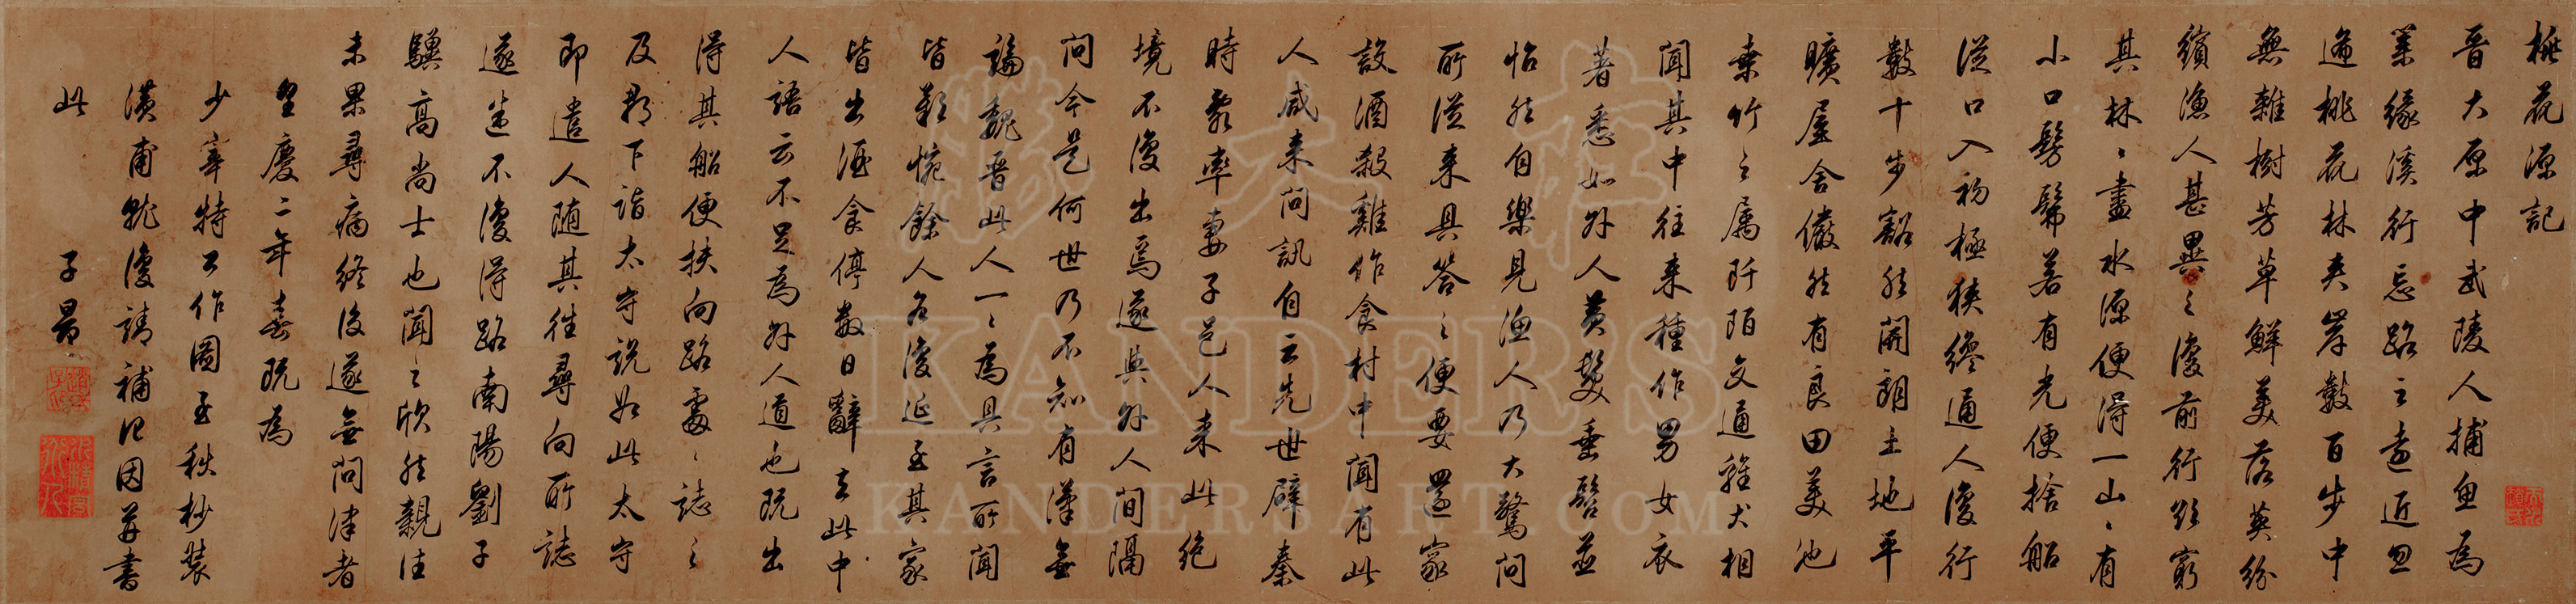 桃花源記
晉太原中武陵人捕魚為
業緣溪行忘路之遠近忽
逢桃花林夾岸數百步中
無雜樹芳草鮮美落英紛
繽漁人甚異之復前行欲窮
其林〻盡水源便得一山〻有
小口髣髴若有光便捨船
從口入初極狹纔通人復行
數十步豁然開朗土地平
曠屋舍儼然有良田美池
桑竹之屬阡陌交通雞犬相
聞其中往來種作男女衣
著悉如外人黃髮垂髫並
怡然自樂見漁人乃大驚問
所從來具答之便要還家
設酒殺雞作食村中聞有此
人咸來問訊自云先世避秦
時亂率妻子邑人來此絕
境不復出焉遂與外人間隔
問今是何世乃不知有漢無
論魏晉此人一〻為具言所聞
皆歎惋餘人各復延至其家
皆出酒食停數日辭去此中
人語云不足為外人道也既出
得其船便扶向路處〻誌之
及郡下詣太守說如此太守
即遣人隨其往尋向所誌
遂迷不復得路南陽劉子
驥高尚士也聞之欣然親往
未果尋病終後遂無問津者
皇慶二年春既為
少宰特公作圖至秋杪裝
潢甫就復請補記因並書
此
子昂
KANDERS
KANDERSART.COM